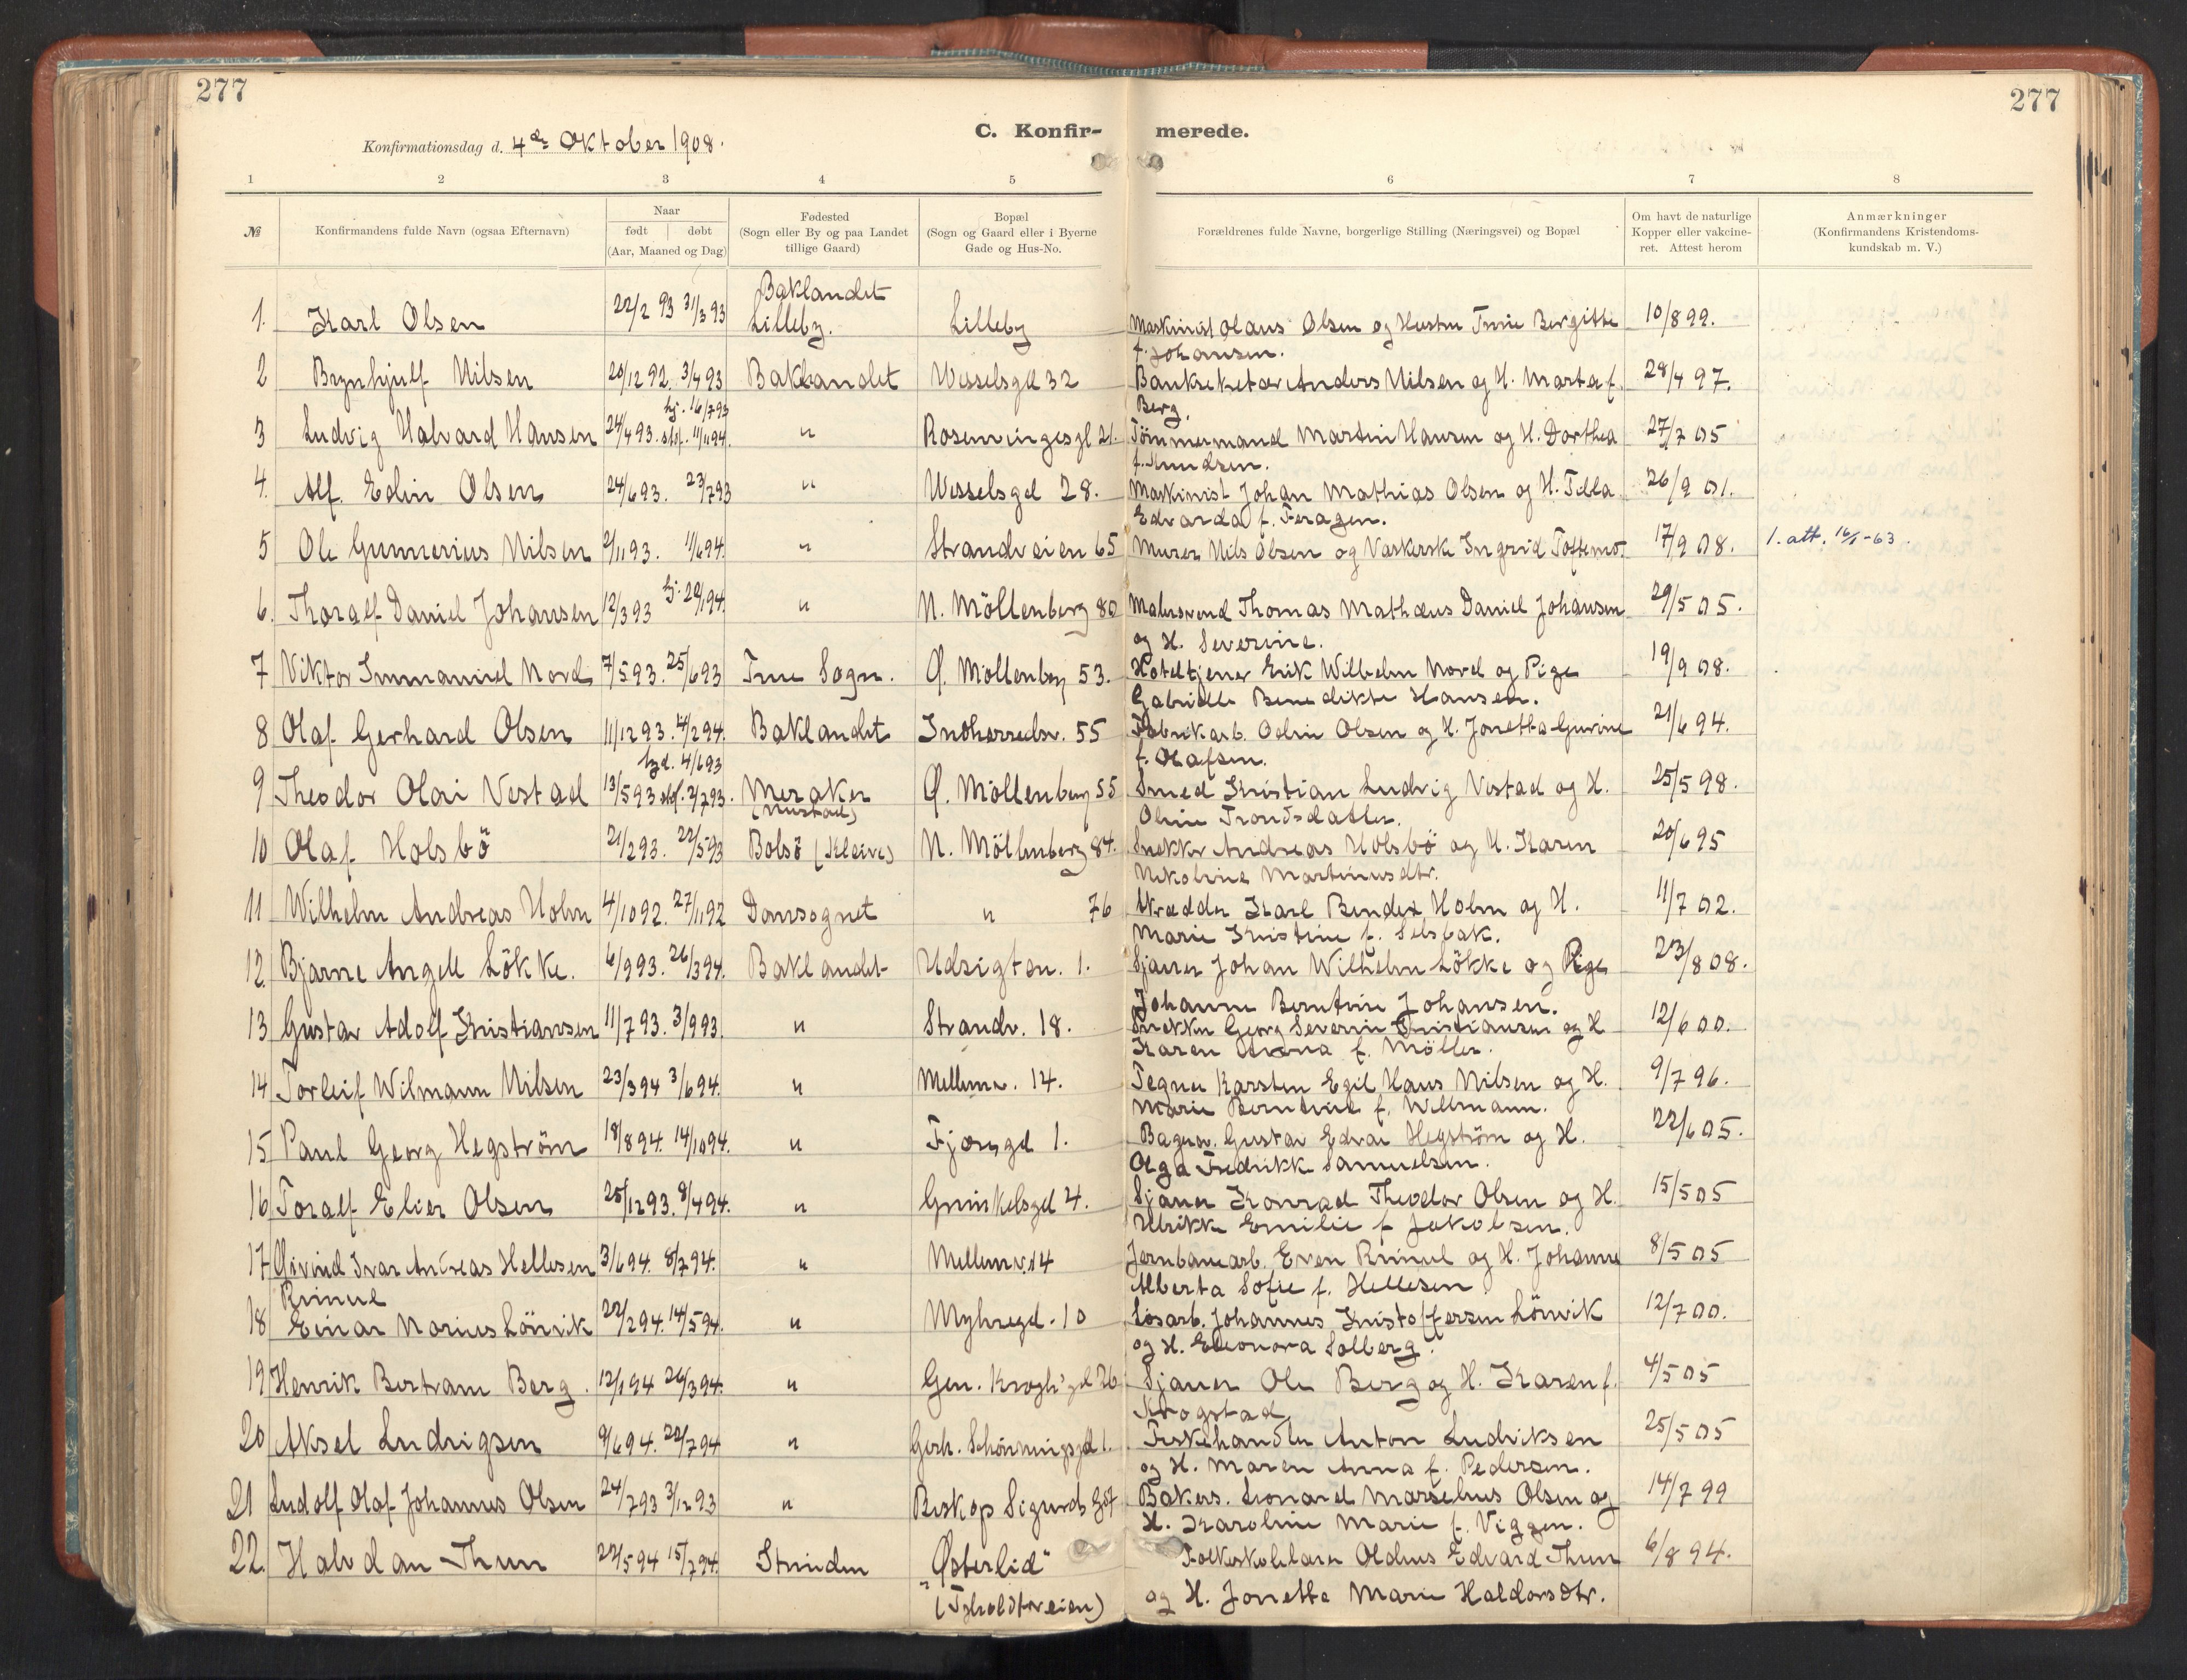 277
277
C. Konfir- merede.
Konfirmationsdag d. 4de Oktober 1908.
1 2 3 4 5 6 7 8
№ Konfirmandens fulde Navn (ogsaa Efternavn) Naar født døbt (Aar, Maaned og Dag) Fødested (Sogn eller By og paa Landet tillige Gaard) Bopæl (Sogn og Gaard eller i Byerne Gade og Hus-No. Forældrenes fulde Navne, borgerlige Stilling (Næringsvei) og Bopæl Om havt de naturlige Kopper eller vakcineret. Attest herom Anmærkninger (Konfirmandens Kristendomskundskab m. V.)
Baklandet
1. Karl Olsen 22/2 93 31/3 93 Lilleby. Lilleby Maskinist Olaus Olsen og Hustru Trine Bergitte 10/8 99.
f. Johansen.
2 Brynhjulf Nilsen 20/12 92. 3/4 93 Baklandet Wesselsgd 32 Anders Nilsen og H. Marta f. 28/4 97.
Berg.
hj. 16/7 93
3 Ludvig Halvard Hansen 24/4 93. stf. 11/1 94. " Rosenvingesgd 21. Tömmermand Martin Hansen og H. Dorthea 27/7 05
f. Knudsen.
4. Alf Edin Olsen 24/6 93. 23/7 93 " Wesselsgd 28. Maskinist Johan Mathias Olsen og H. 26/9 01.
Edvarda f. Feragen.
5 Ole Gunnerius Nilsen 2/11 93. 1/6 94. " Strandveien 65 Murer Nils Olsen og Vaskerske Ingrid Toftemo. 17/9 08. 1. att. 16/1-63.
6. Thoralf Daniel Johansen 12/3 93 hj. 20/1 94. " N. Möllenberg 80 Malersvend Thomas Mathæus Daniel Johansen 29/5 05.
og H. Severine.
7 Viktor Immanuel Nord 7/5 93. 25/6 93 Frue Sogn. Ø. Möllenberg 53. Hoteltjener Erik Wilhelm Nord og Pige 19/9 08.
Gabrielle Benedikte Hansen.
8 Olaf Gerhard Olsen 11/12 93. 4/2 94. Baklandet Indherredsv. 55 Fabrikarb. Odin Olsen og H. Jonetta Gurine 21/6 94.
f. Olafsen.
hjd. 4/6 93
9 Theodor Olai Vestad 13/5 93 stf. 2/7 93. Meraker Ø. Möllenberg 55 Smed Kristian Ludvig Vestad og H. 25/5 98.
Oline Trondsdatter.
10 Olaf Holsbö 21/2 93. 22/5 93 Bolsö (Kleive) N. Möllenberg 84. Snekker Andreas Holsbö og H. Karen 20/6 95
Nikoline Martinusdtr.
11 Wilhelm Andreas Holm 4/10 92. 27/11 92 Domsognet " 76 Skrædder Karl Bendix Holm og H. 11/7 02.
Marie Kristine f. Selsbak.
12. Bjarne Angell Lökke. 6/9 93. 26/3 94. Baklandet Udsigten. 1. Sjauer Johan Wilhelm Lökke og Pige 23/8 08.
Johanne Berntine Johansen.
13 Gustav Adolf Kristiansen 11/7 93. 3/9 93. " Strandv. 18. Snekker Georg Severin Kristiansen og H 12/6 00.
Karen Anna f. Möller.
14 Torleif Wilmann Nilsen 23/3 94 3/6 94. " Mellemv. 14. Tegner Karsten Egil Hans Nilsen og H. 9/7 96.
Marie Berntine f. Willmann.
15 Paul Georg Hegström 18/8 94. 14/10 94. " Fjæregd 1. Bagerv. Gustav Edvar Hegström og H. 22/6 05.
Olga Fredrikk Samuelsen.
16 Toralf Elier Olsen 25/12 93. 8/4 94. " Grinkelsgd 4. Sjauer Konrad Theodor Olsen og H. 15/5 05
Ulrikke Emilie f Jakobsen.
17 Øivind Ivar Andreas Hellesen 3/6 94. 8/7 94. " Mellemv. 14 Jernbanearb. Even Rimul og H. Johanne 8/5 05
Rimul Alberta Sofie f. Hellesen
18 Einar Marius Lönvik 22/2 94. 14/5 94. " Myhregd. 10 Lösarb. Johannes Kristoffersen Lönvik 12/7 00.
og H. Eleonora Solberg.
19 Henrik Bertram Berg. 12/1 94 26/3 94. " Gen. Krogh'gd 26 Sjauer Ole Berg og H. Karen f. 4/5 05
Krogstad
20 Aksel Ludvigsen 9/6 94. 22/7 94 " Gerh. Schönningsgd 1. Fiskehandler Anton Ludviksen 25/5 05
og H. Maren Anna f. Pedersen.
21 Ludolf Olaf Johannes Olsen 24/7 93 3/12 93 " Biskop Sigurds g. 57 Bakers. Leonard Marselius Olsen og 14/7 99
H. Karoline Marie f. Viggen.
22. Halvdan Thun 22/5 94 15/7 94. Strinden "Østerlid" Folkeskolelærer Oldius Edvard Thun 6/8 94.
og H. Jonetta Marie Haldorsdtr.